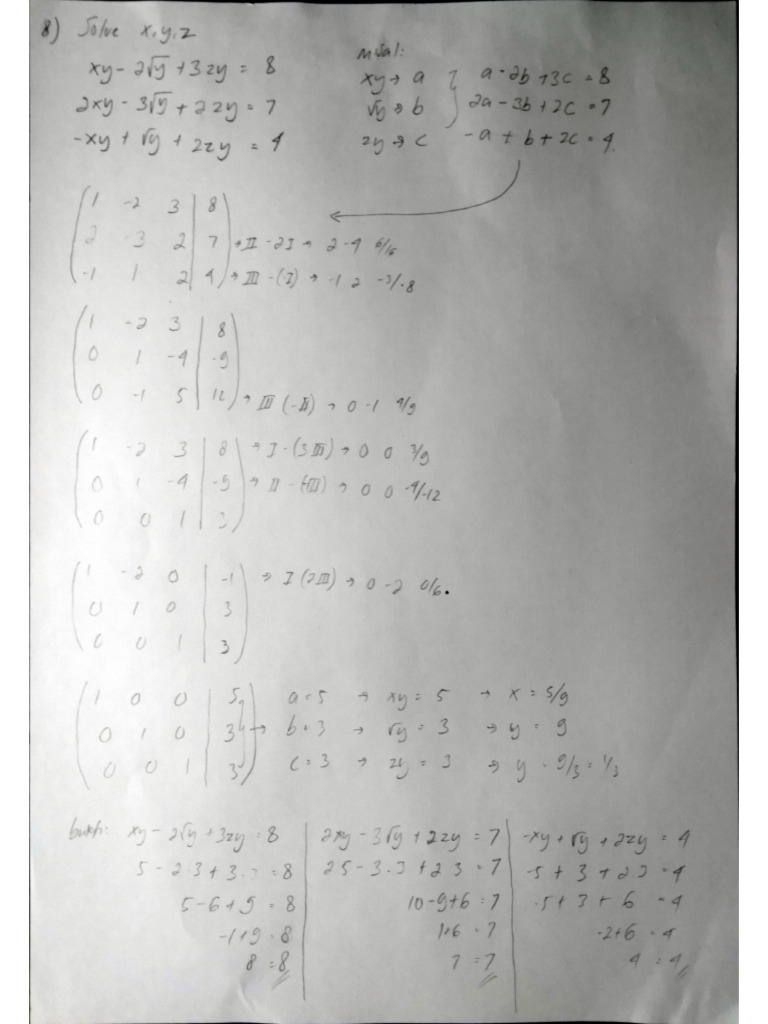 8) Solve x,y,z
xy - 2√y + 3zy = 8
2xy - 3√y + 2zy = 7
-xy + √y + 2zy = 4
misal:
xy → a } a - 2b + 3c = 8
√y → b } 2a - 3b + 2c = 7
zy → c -a + b + 2c = 4
1 -2 3 | 8
2 -3 2 | 7 → II - 2I → 2 -4 6/16
-1 1 2 | 4 → III - (-I) → -1 2 -3/-8
1 -2 3 | 8
0 1 -4 | -9
0 -1 5 | 12 → III (-II) → 0 -1 4/9
1 -2 3 | 8 → I - (3III) → 0 0 3/9
0 1 -4 | -9 → II - (-4III) → 0 0 -4/-12
0 0 1 | 3
1 -2 0 | -1 → I (2II) → 0 -2 0/6.
0 1 0 | 3
0 0 1 | 3
1 0 0 | 5 a = 5 → xy = 5 → x = 5/9
0 1 0 | 3 → b = 3 → √y = 3 → y = 9
0 0 1 | 3 c = 3 → zy = 3 → y = 9/3 = 1/3
bukti: xy - 2√y + 3zy = 8
5 - 2·3 + 3·3 = 8
5 - 6 + 9 = 8
-1 + 9 = 8
8 = 8
2xy - 3√y + 2zy = 7
2 5 - 3·3 + 2 3 = 7
10 - 9 + 6 = 7
1 + 6 = 7
7 = 7
-xy + √y + 2zy = 4
-5 + 3 + 2 3 = 4
-5 + 3 + 6 = 4
-2 + 6 = 4
4 = 4